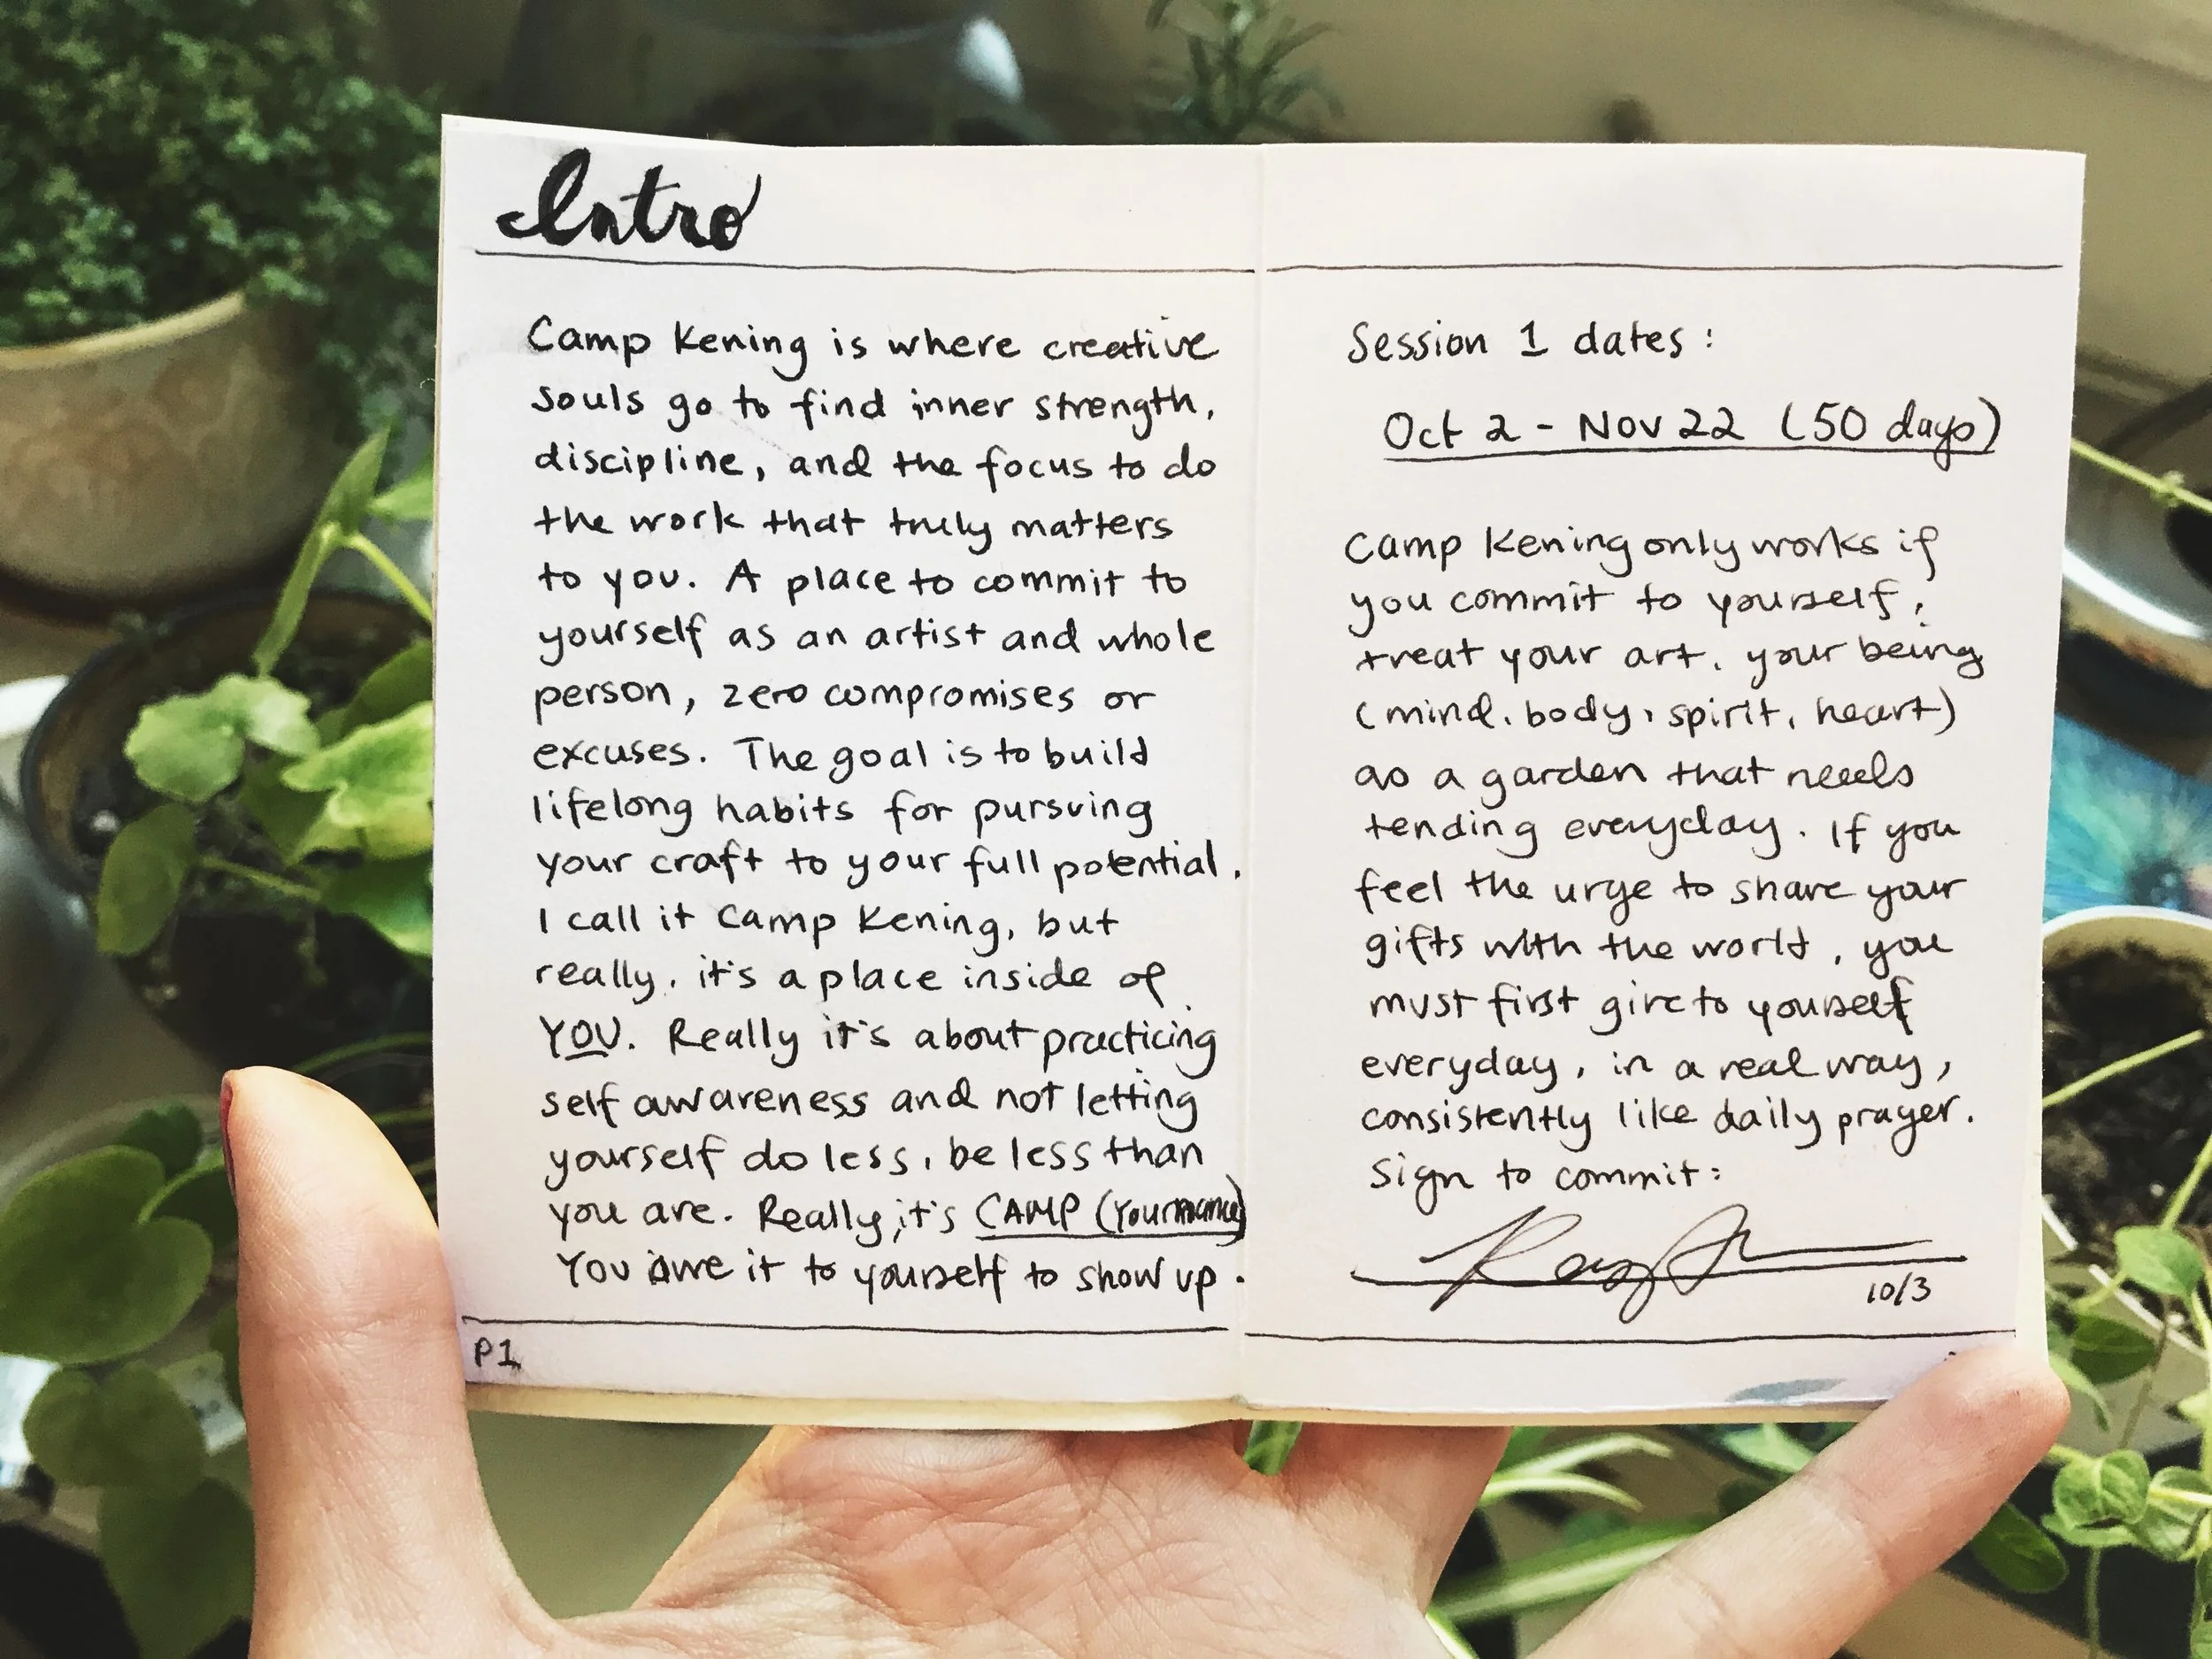 Intro
Camp Kening is where creative
souls go to find inner strength,
discipline, and the focus to do
the work that truly matters
to you. A place to commit to
yourself as an artist and whole
person, zero compromises or
excuses. The goal is to build
lifelong habits for pursuing
your craft to your full potential.
I call it Camp Kening, but
really, it's a place inside of
YOU. Really it's about practicing
self awareness and not letting
yourself do less, be less than
you are. Really, it's CAMP (Yourname)
You owe it to yourself to show up.
P1
Session 1 dates:
Oct 2 - Nov 22 (50 days)
Camp Kening only works if
you commit to yourself,
treat your art, your being
(mind, body, spirit, heart)
as a garden that needs
tending everyday. If you
feel the urge to share your
gifts with the world, you
must first give to yourself
everyday, in a real way,
consistently like daily prayer.
Sign to commit:
10/3